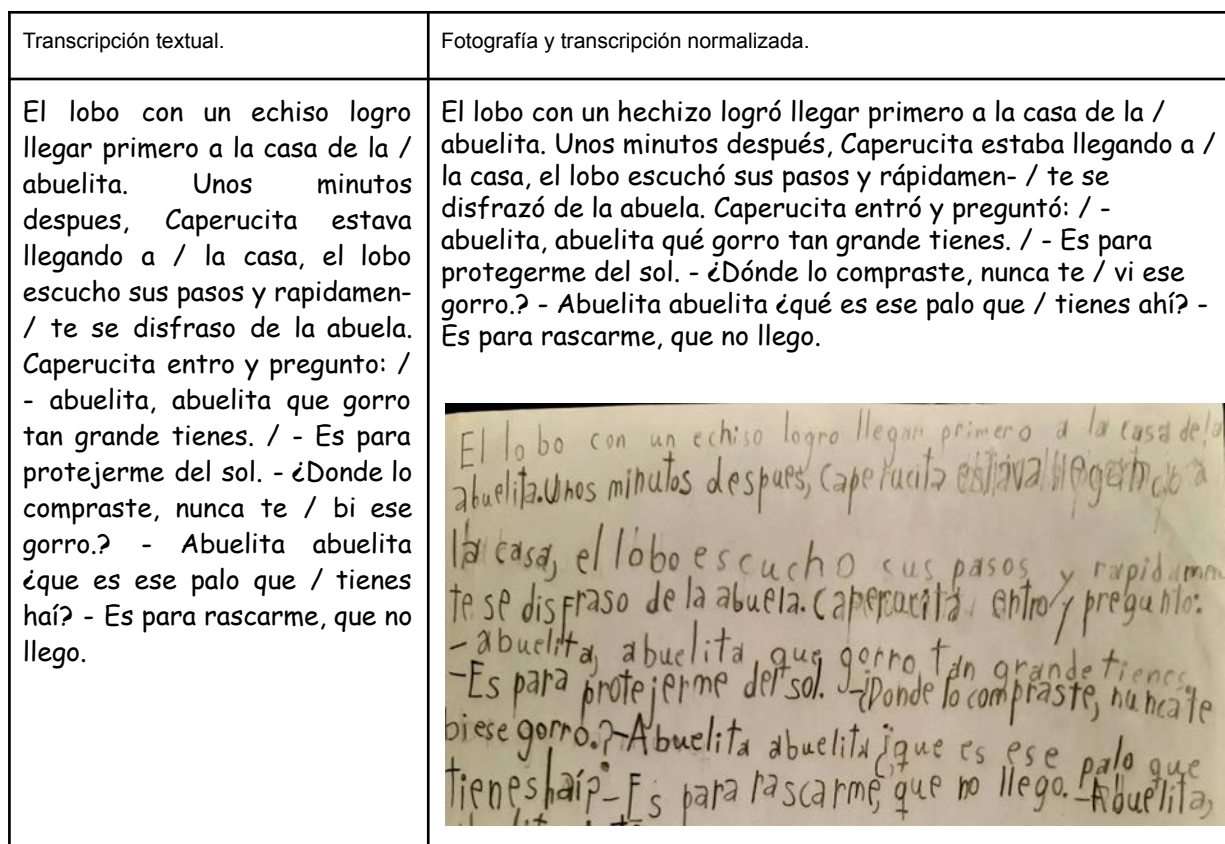 Transcripción textual.
Fotografía y transcripción normalizada.
El lobo con un echiso logro
llegar primero a la casa de la /
abuelita. Unos minutos
despues, Caperucita estava
llegando a / la casa, el lobo
escucho sus pasos y rapidamen-
/ te se disfraso de la abuela.
Caperucita entro y pregunto: /
- abuelita, abuelita que gorro
tan grande tienes. / - Es para
protejerme del sol. - ¿Donde lo
compraste, nunca te / bi ese
gorro.? - Abuelita abuelita
¿que es ese palo que / tienes
haí? - Es para rascarme, que no
llego.
El lobo con un hechizo logró llegar primero a la casa de la /
abuelita. Unos minutos después, Caperucita estaba llegando a /
la casa, el lobo escuchó sus pasos y rápidamen- / te se
disfrazó de la abuela. Caperucita entró y preguntó: / -
abuelita, abuelita qué gorro tan grande tienes. / - Es para
protegerme del sol. - ¿Dónde lo compraste, nunca te / vi ese
gorro.? - Abuelita abuelita ¿qué es ese palo que / tienes ahí? -
Es para rascarme, que no llego.
El lobo con un echiso logro llegar primero a la casa de la
abuelita. Unos minutos despues, Caperucita estava llegando a
la casa, el lobo escucho sus pasos y rapidamen
te se disfraso de la abuela. Caperucita entro y pregunto:
- abuelita, abuelita que gorro tan grande tienes.
- Es para protejerme del sol. - ¿Donde lo compraste, nunca te
bi ese gorro.? - Abuelita abuelita ¿que es ese palo que
tienes haí? - Es para rascarme, que no llego. - Abuelita,